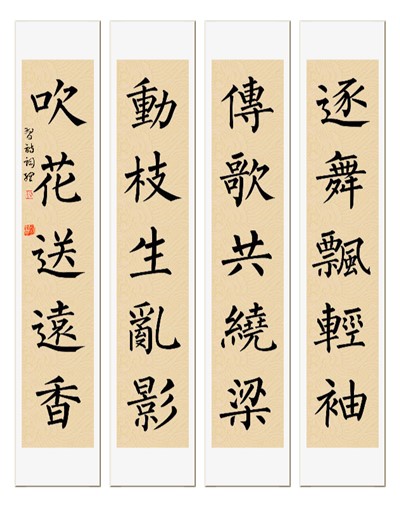 逐舞飄輕袖
傳歌共繞梁
動枝生亂影
吹花送遠香